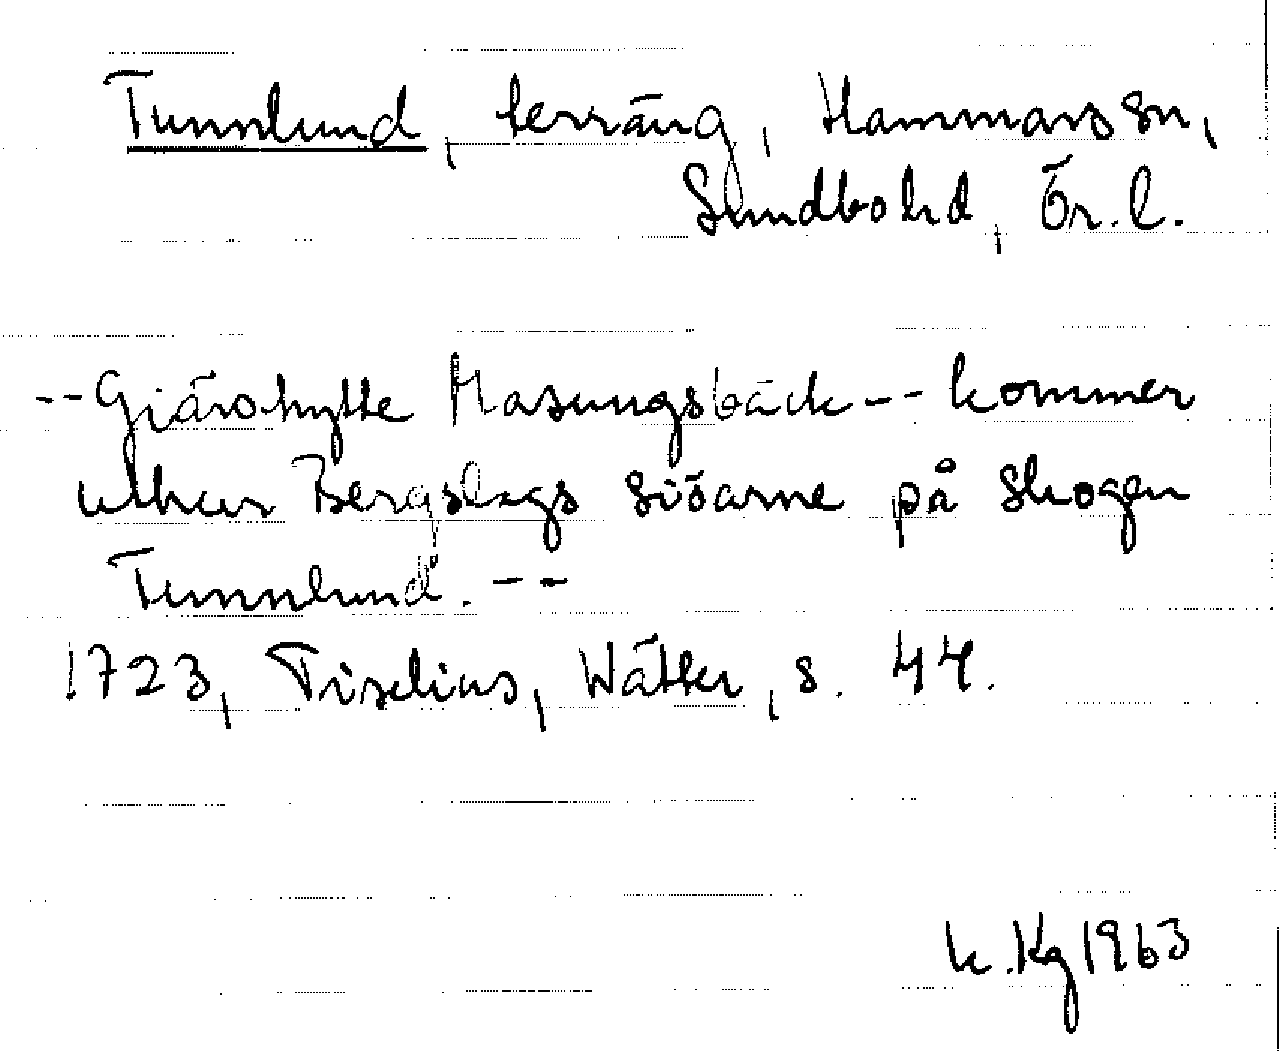 Tunnlund, terräng, Hammars sn,
Sundbo hd, Ör.l.
-- Giärshytte Masungsbäck -- kommer
uthur Bergslags siöarne på skogen
Tunnlund. --
1723, Tiselius, Wätter, s. 44.
k. Kg 1963